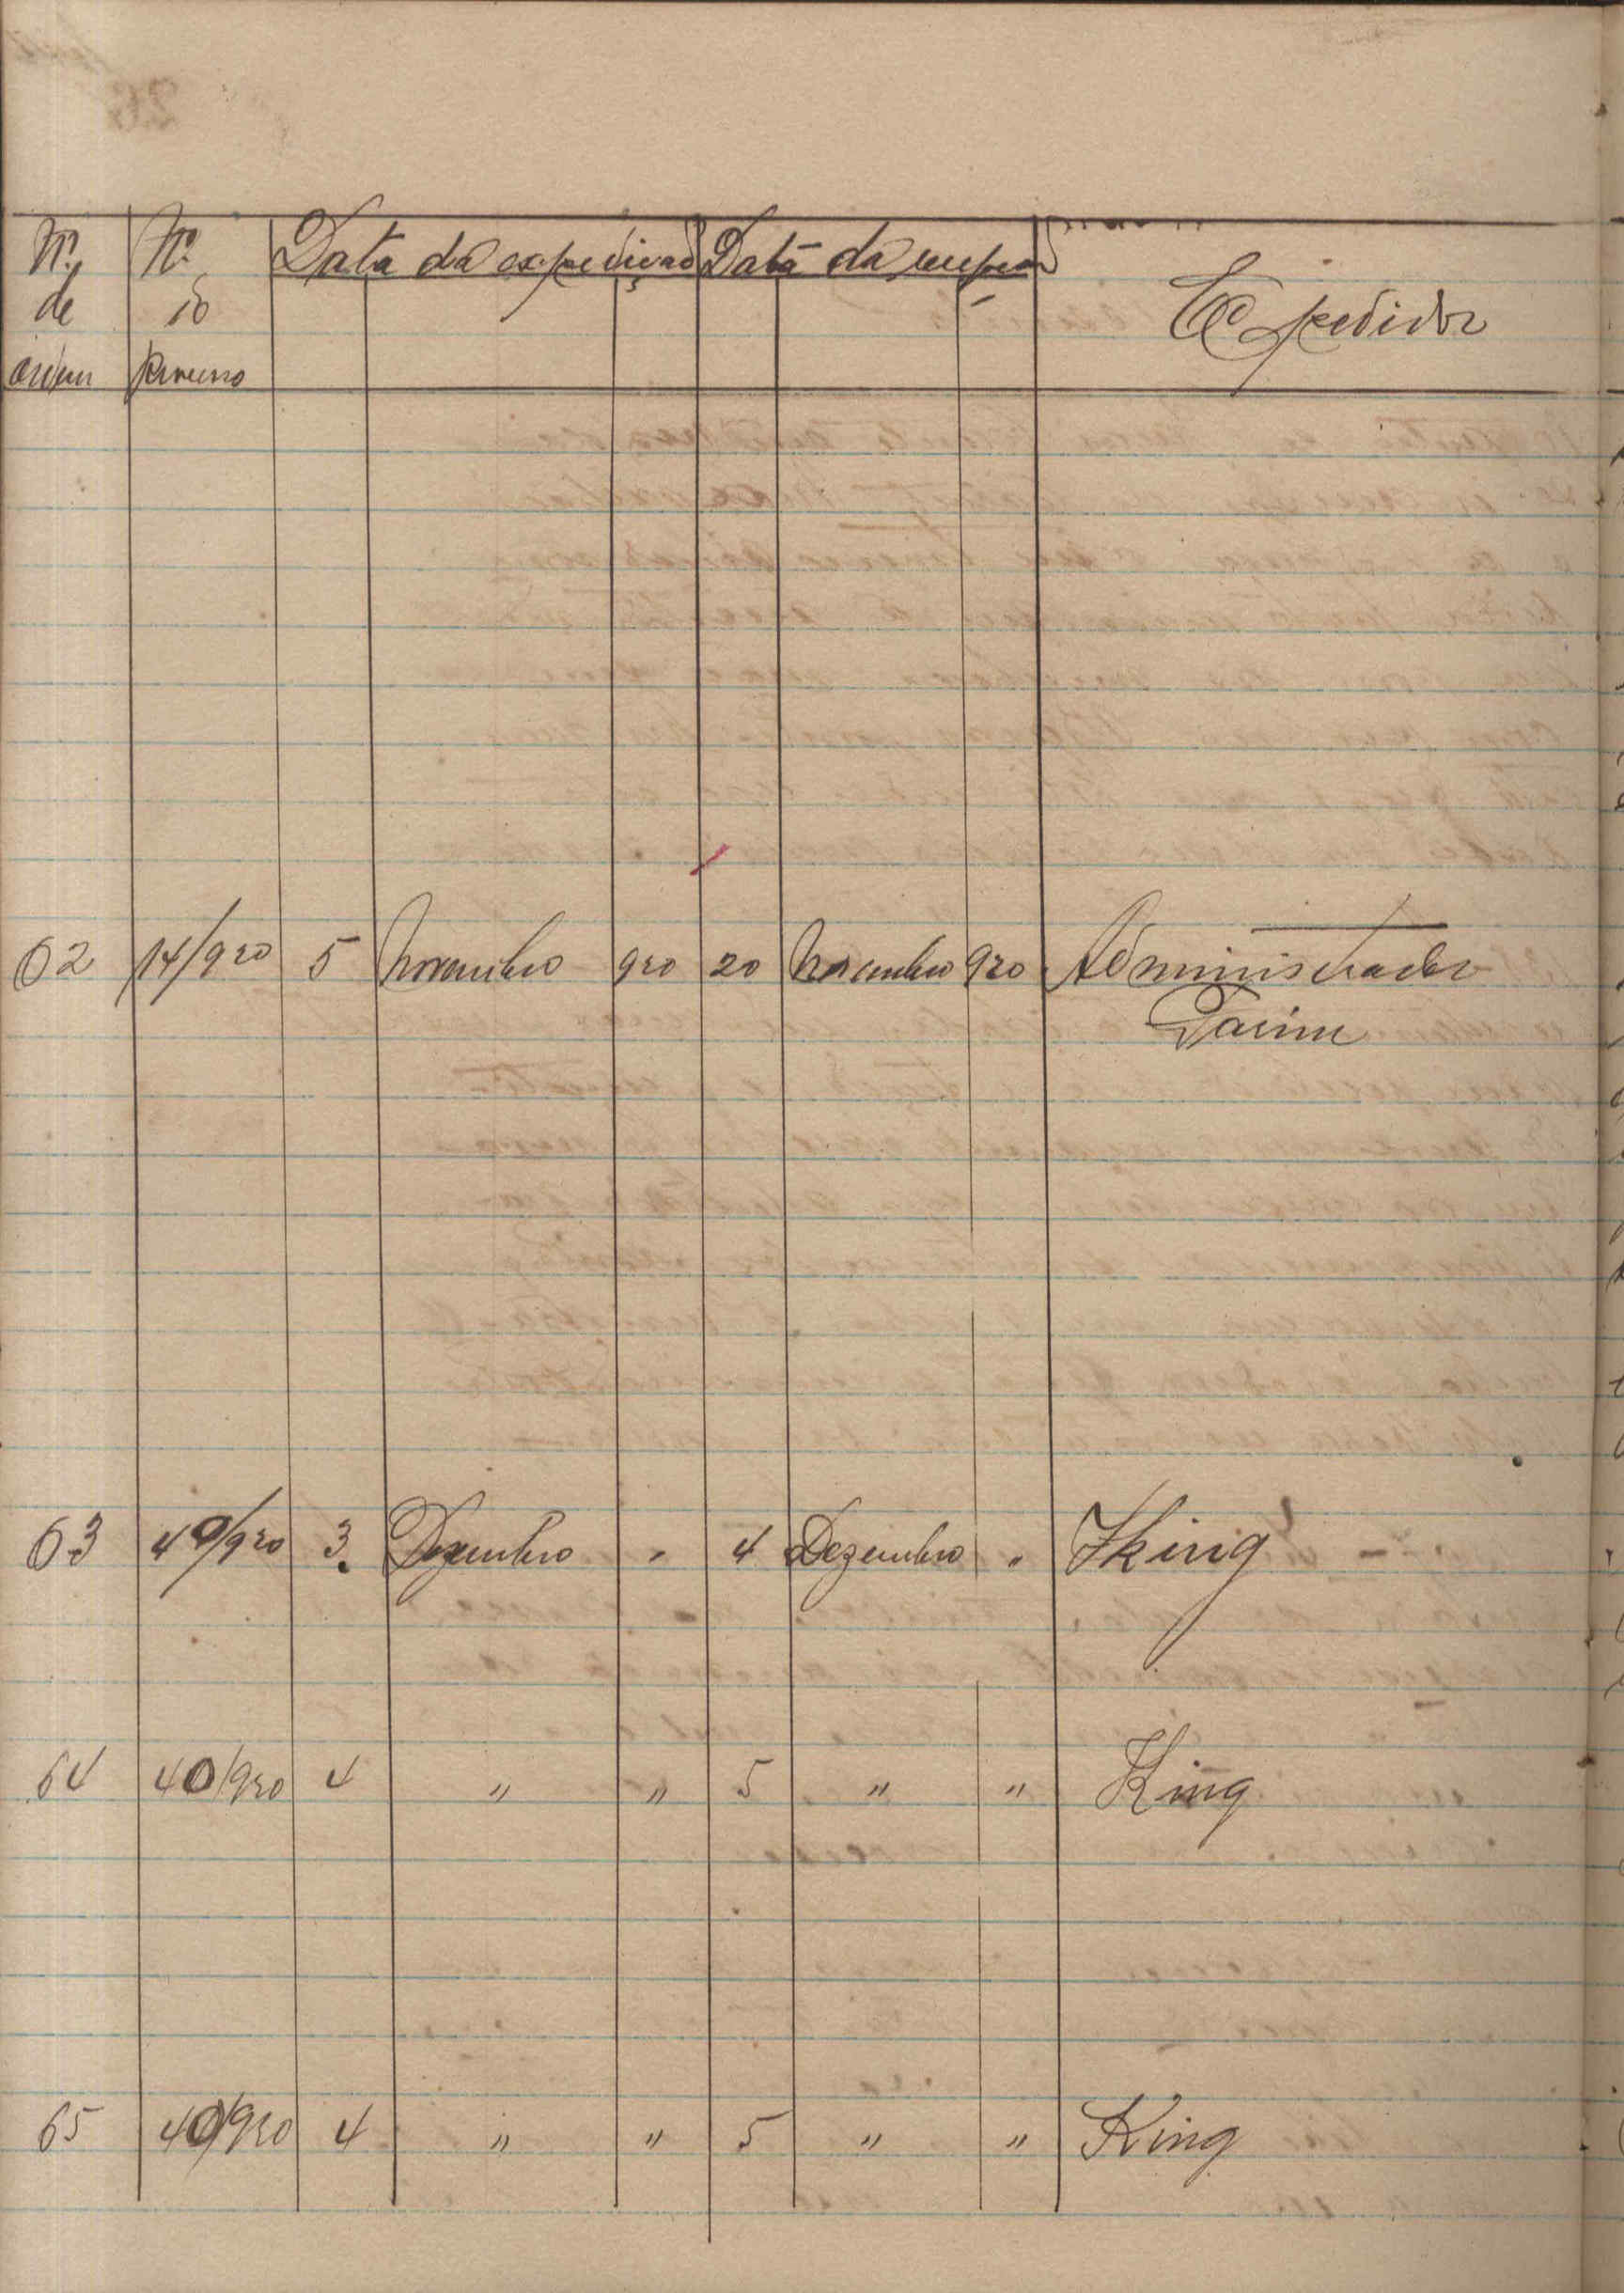 Nº de ordem Nº do Data da expedição Data da Expedidor
62 14/920 5 Novembro 920 20 Novembro 920 Administrador
63 40/920 3 Dezembro " 4 Dezembro " King
64 40/920 4 " " 5 " " King
65 40/920 4 " " 5 " " King